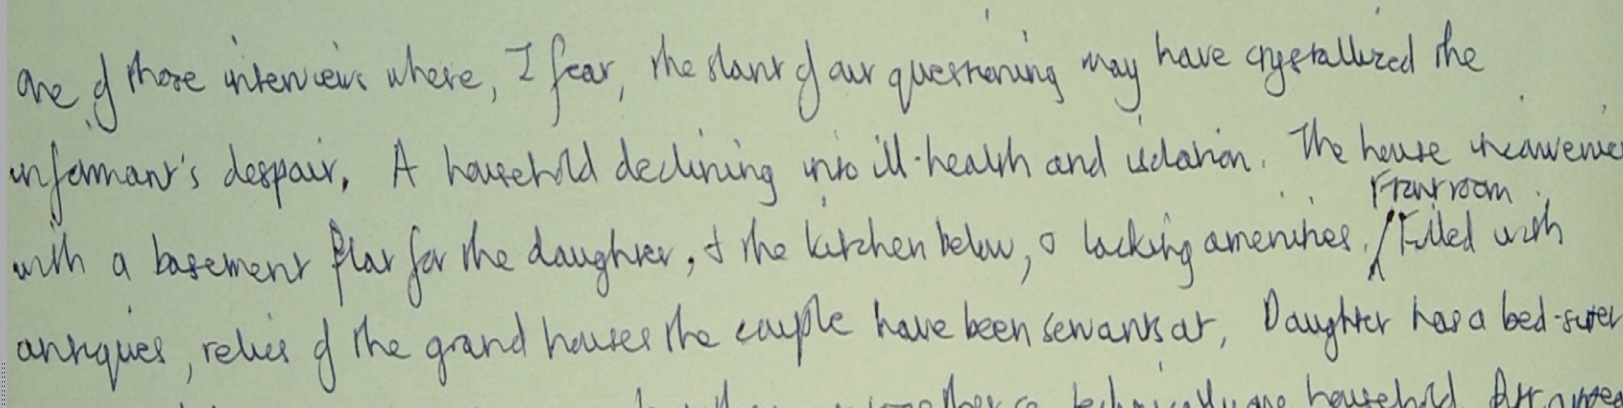 One of those interviews where, I fear, the slant of our questioning may have crystallized the
informant's despair. A household declining into ill-health and isolation. The house
Front room
with a basement flat for the daughter, & the kitchen below, & lacking amenities. Filled with
antiques, relics of the grand houses the couple have been servants at. Daughter has a bed-sitter
household